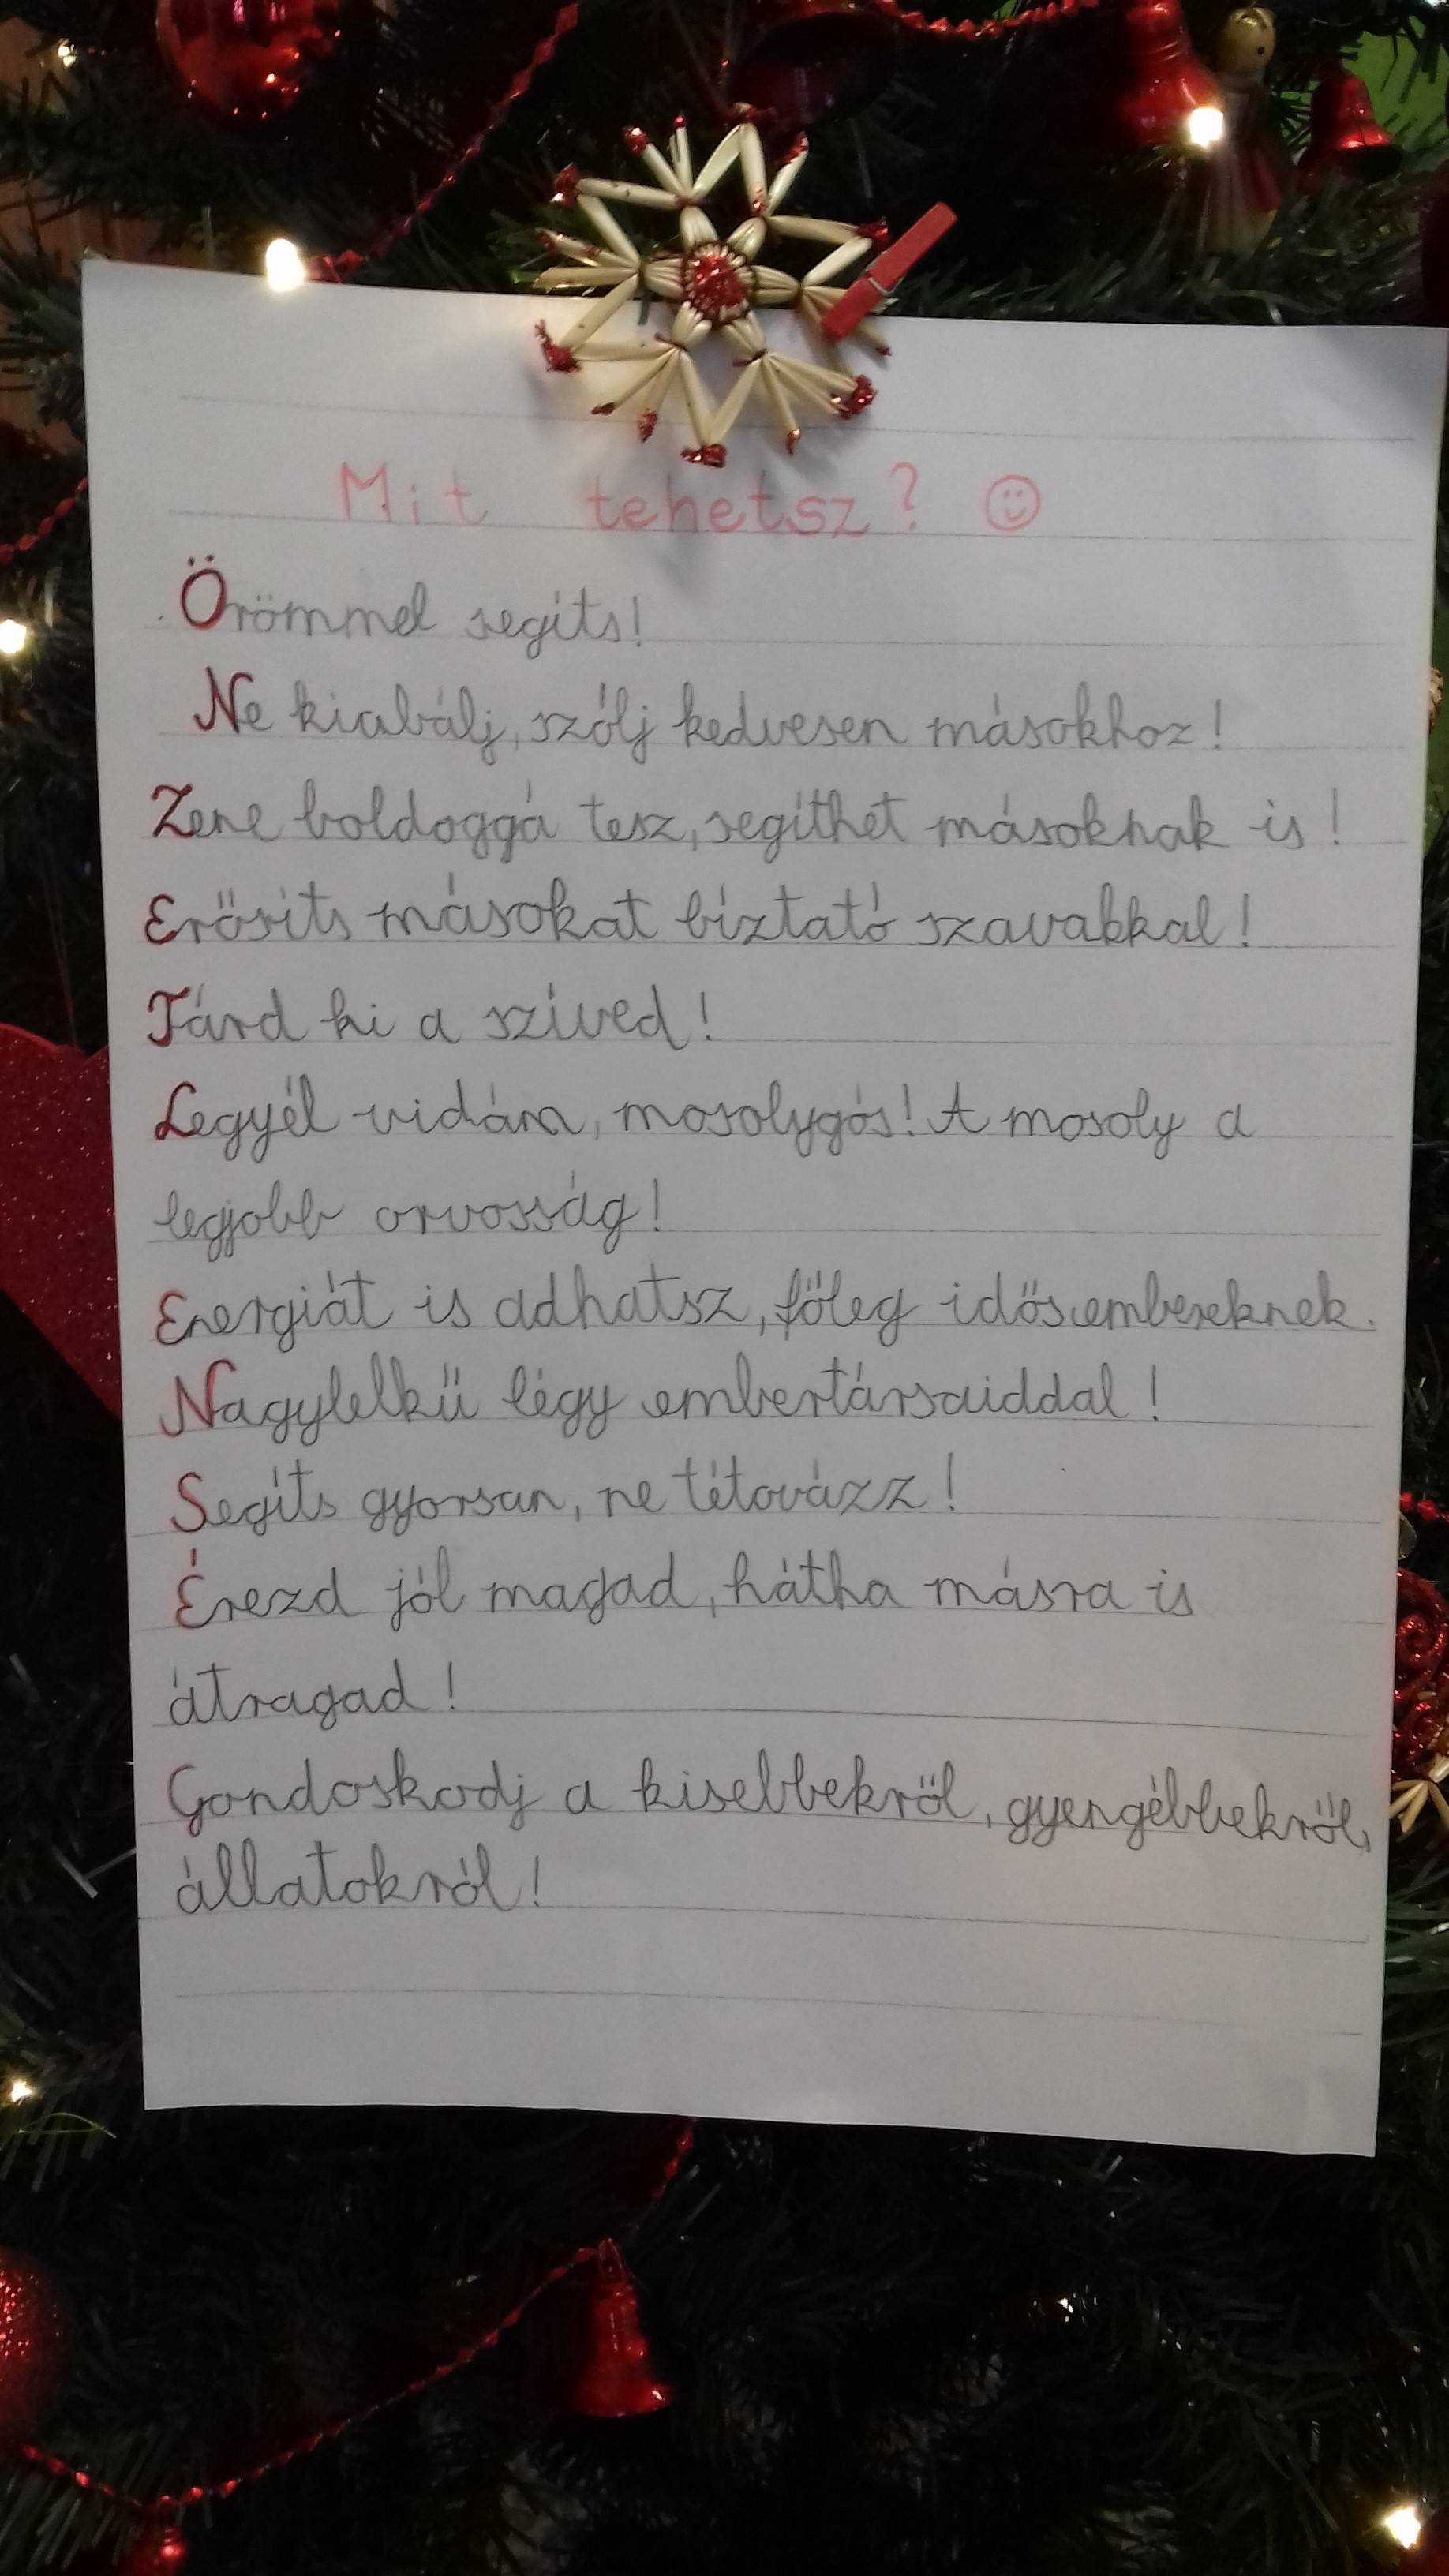 Mit tehetsz? ☺
Örömmel segíts!
Ne kiabálj, szólj kedvesen másokhoz!
Zene boldoggá tesz, segíthet másoknak is!
Erősíts másokat bíztató szavakkal!
Tárd ki a szíved!
Legyél vidám, mosolygós! A mosoly a
legjobb orvosság!
Energiát is adhatsz, főleg idős embereknek.
Nagylelkű légy embertársaiddal!
Segíts gyorsan, ne tétovázz!
Érezd jól magad, hátha másra is
átragad!
Gondoskodj a kisebbekről, gyengébbekről,
állatokról!